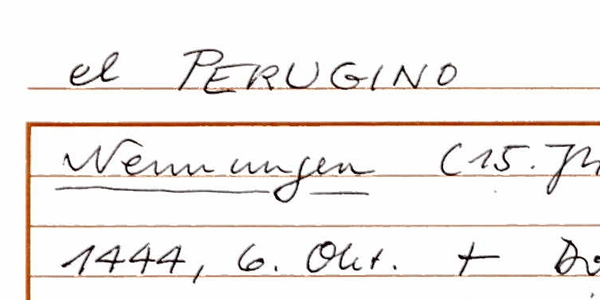 el PERUGINO
Nennungen (15. Jh
1444, 6. Okt. + Do